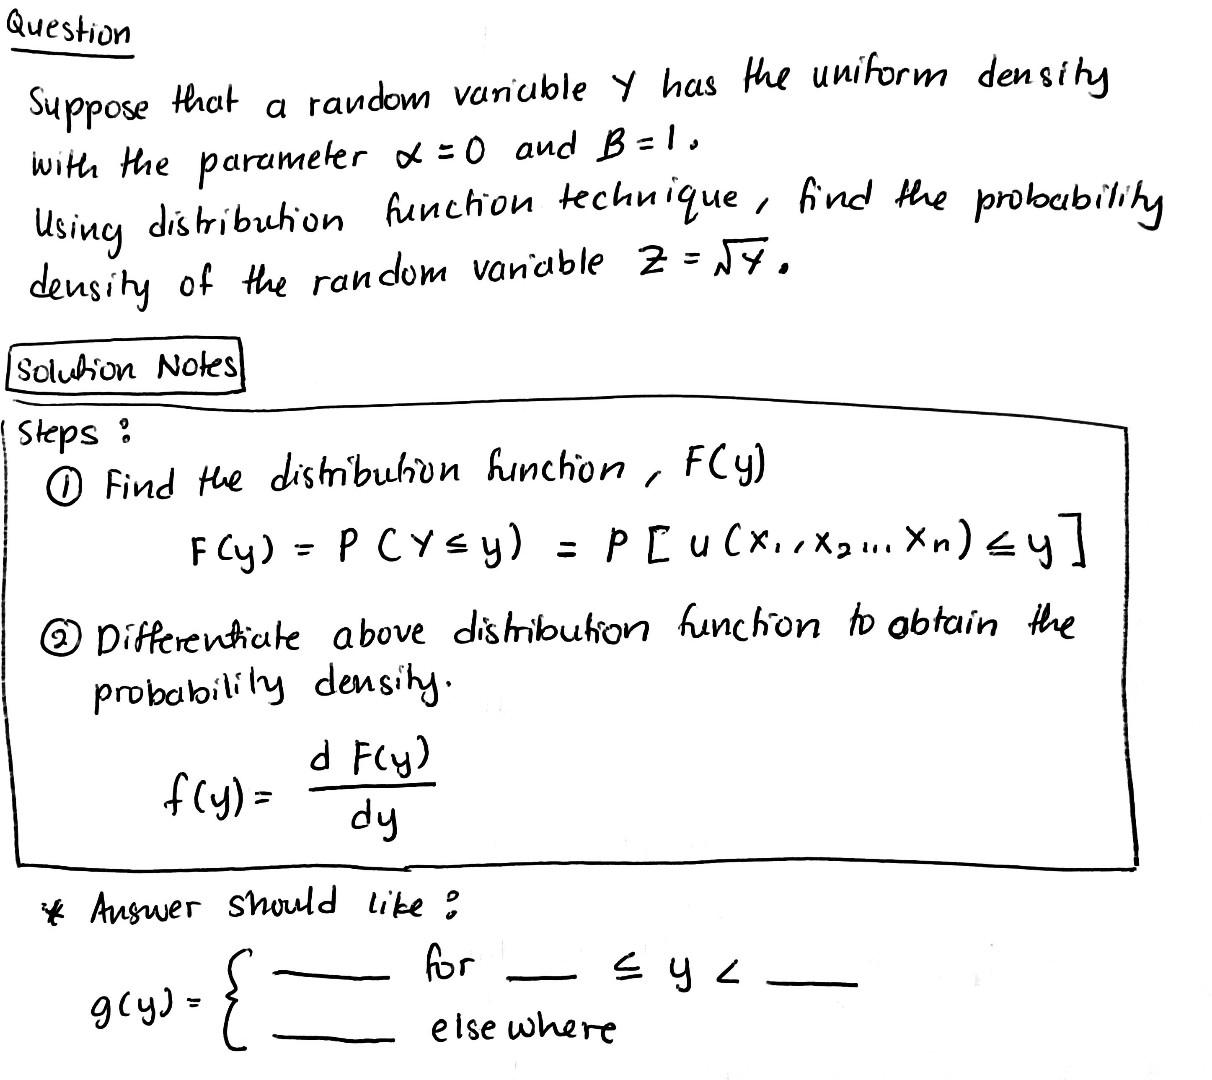 Question
Suppose that a random variable Y has the uniform density
with the parameter α = 0 and B = 1.
Using distribution function technique, find the probability
density of the random variable Z = √Y.
Solution Notes
Steps :
① Find the distribution function, F(y)
F(y) = P(Y ≤ y) = P[u(X₁, X₂ ... Xn) ≤ y]
② Differentiate above distribution function to obtain the
probability density.
f(y) = d F(y) / dy
* Answer should like :
g(y) = { ___ for ___ ≤ y < ___
___ elsewhere